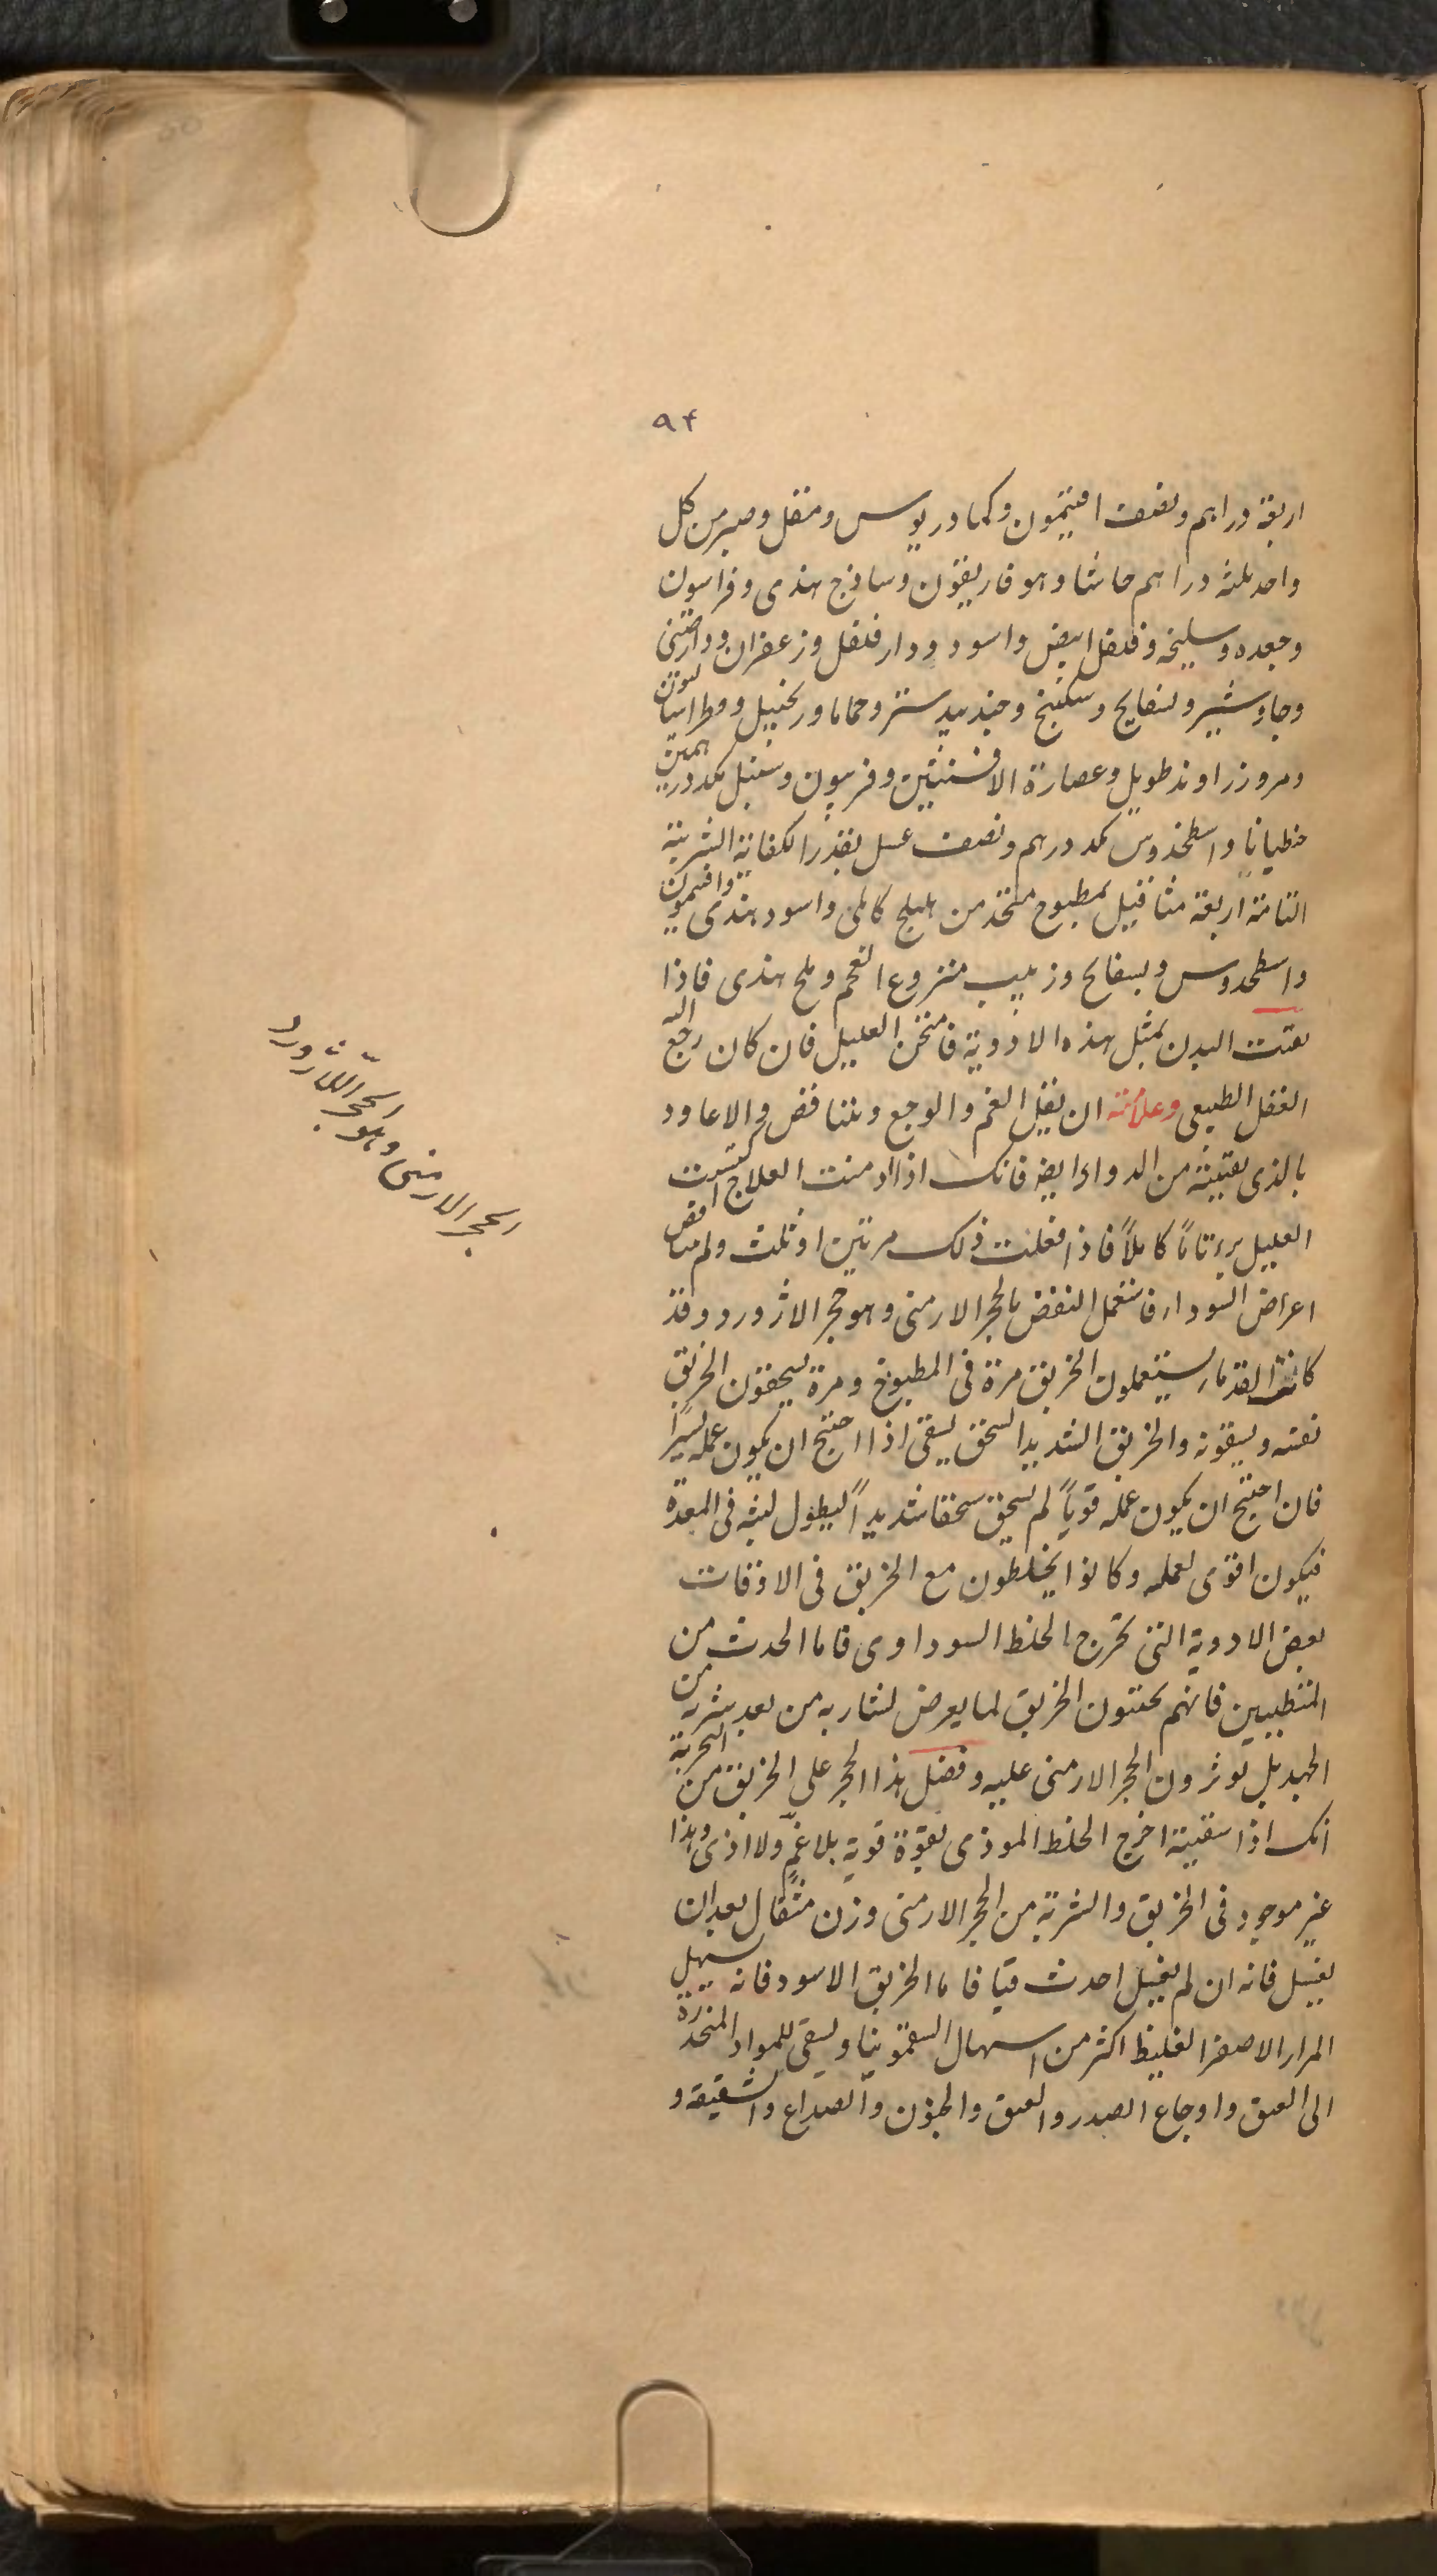 ٩٤
اربعة دراهم ونصف افتيمون وكمادريوس ومقل وصبر من كل
واحد ثلثه دراهم حاشا وهوفاريقون وساذج هندى وفراسيون
وجعده وسليخه وفلفل ابيض واسود ودارفلفل وزعفران ودارصينى
وجاوشير وبسفايج وسكبينج وجندبيدستر وحماما وزنجبيل وفطراساليون
ومر وزراوند طويل وعصارة الافسنتين وفربيون وسنبل كمد درهمين
جنطيانا واسطخدوس كمد درهم ونصف عسل بقدر الكفاية الشربة
التامة اربعة مثاقيل بمطبوخ متخذ من هليلج كابلى واسود هندى وافتيمون
واسطخدوس وبسفايج وزبيب منزوع العجم وملح هندى فاذا
نقيت البدن بمثل هذه الادوية فامتحن العليل فان كان رجع اليه
العقل الطبيعى وعلامته ان يقل الغم والوجع ويتناقض والا عاود
بالذى نقيته من الدواء ايضا فانك اذا ادمنت العلاج اكتسبت
العليل برءتاما كاملاً فاذا فعلت ذلك مرتين او ثلث ولم تتناقص
اعراض السوداء فاستعمل النفض بالحجر الارمنى وهو حجر الاثرورد وقد
كانت القدماء يستعملون الخربق مرة فى المطبوخ ومرة يسحقون الخربق
نفسه ويسقونه والخربق الشديد السحق يسقى اذا احتيج ان يكون عمله يسيراً
فان احتيج ان يكون عمله قوياً لم يسحق سحقا شديداً ليطول لبثه فى المعدة
فيكون اقوى لعمله وكانوا يخلطون مع الخربق فى الاوقات
بعض الادوية التى تخرج الخلط السوداوى فاما الحدث من
المتطببين فانهم يجتنبون الخربق لما يعرض لشاربه من بعد شربه من
الجهد بل يوثرون الحجر الارمنى عليه وفضل هذا الحجر على الخربق من التجربة
انك اذا سقيته اخرج الخلط الموذى بقوة قوية بلا غمٍّ ولا اذى وهذا
غير موجود فى الخربق والشربة من الحجر الارمنى وزن مثقال بعد ان
يغسل فانه ان لم يغسل احدث قيا فاما الخربق الاسود فانه يسهل
المرار الاصفر الغليظ اكثر من اسهال السقمونيا ويسقى للمواد المنحدرة
الى العنق واوجاع الصدر والعنق والجنون والصداع والشقيقة و
الحجر الارمنى وهو الحجر اللاثورد